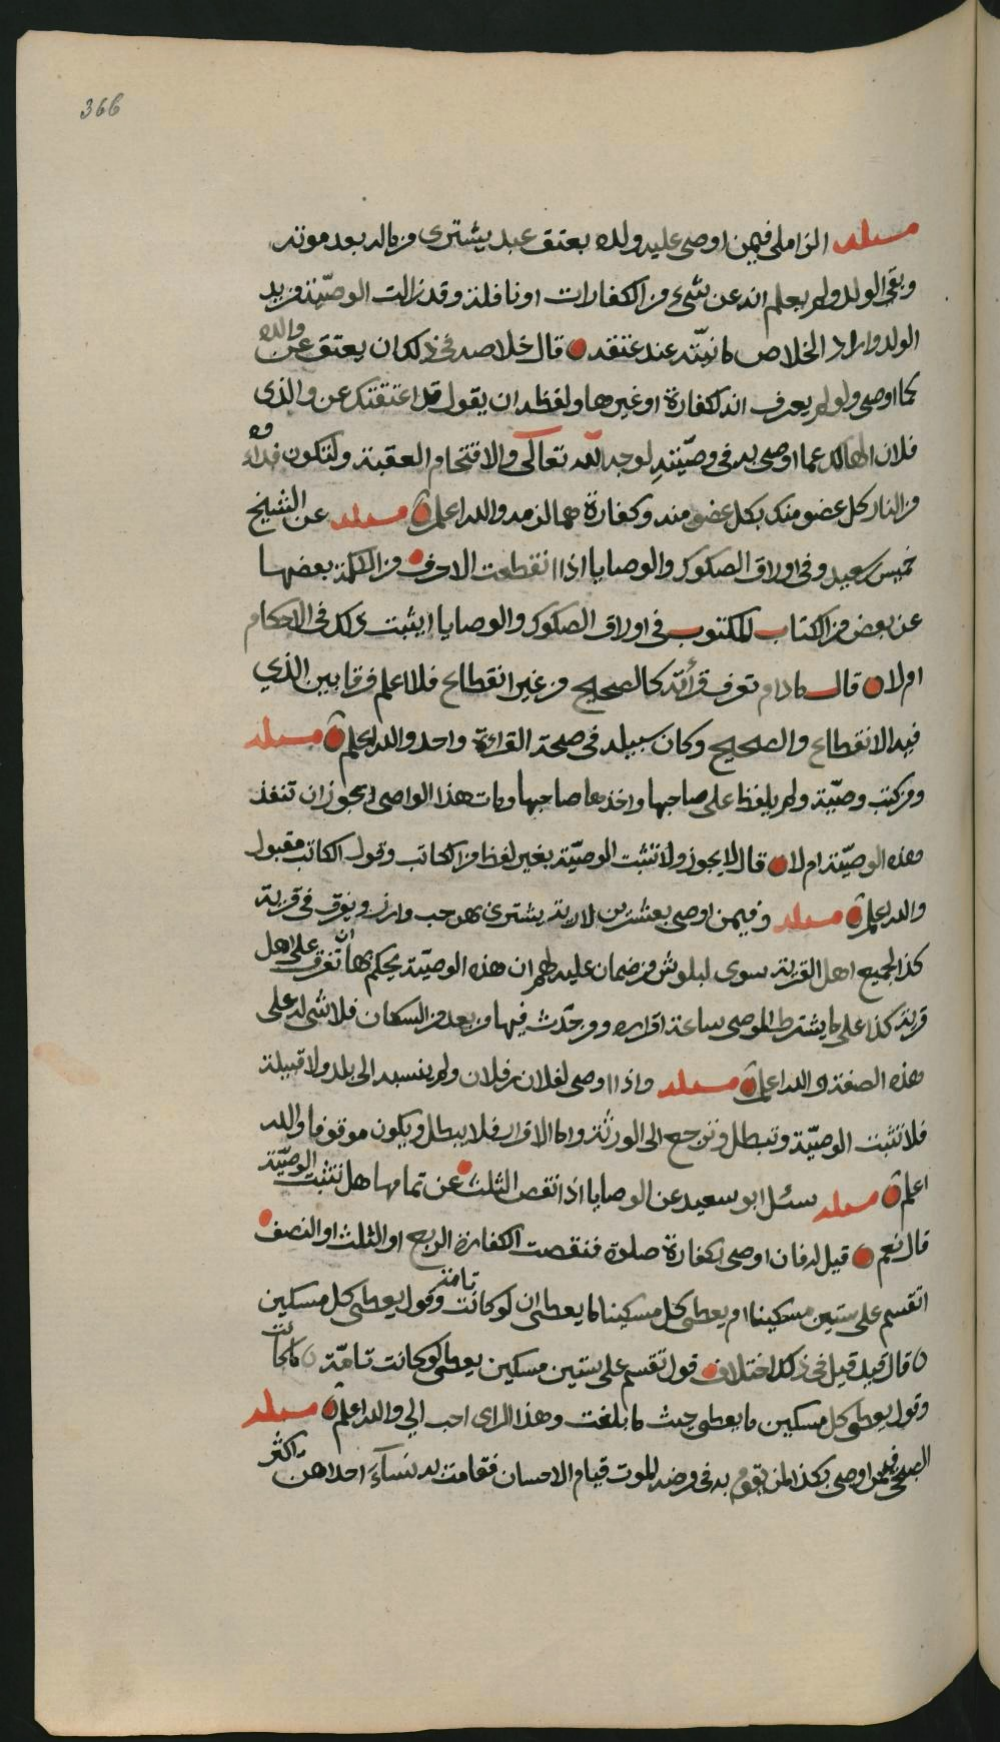 366
مسئلة الزاملي فيمن اوصى عليه ولده بعتق عبد يشترى من ماله بعد موته
وبقى الولد ولم يعلم انه عن شيء من الكفارات او نافلة وقد نزلت الوصيّة من يد
الولد واراد الخلاص ما نيّته عند عتقه قال خلاصه في ذلك ان يعتق عن والده
كما اوصى ولو لم يعرف انه كفارة او غيرها ولفظه ان يقول قد اعتقتك عن والدى
فلان الهالك عما اوصى به في وصيّته لوجه الله تعالى والاقتحام العقبة ولتكون فداؤه
من النار كل عضو منك بكل عضو منه وكفارة مما لزمه والله اعلم مسئلة عن الشيخ
خميس سعيد وفي اوراق الصكوك والوصايا اذا انقطعت الاحرف من الكلمة بعضها
عن بعض من الكتاب المكتوب في اوراق الصكوك والوصايا ايثبت ذلك في الاحكام
ام لا قال ما دام تعرف قرأته كالصحيح من غير انقطاع فلا اعلم فرقا بين الذي
فيه الانقطاع والصحيح وكان سبيله في صحة القرائة واحد والله اعلم مسئلة
ومن كتب وصيّة ولم يلفظ على صاحبها واخذها صاحبها ومات هذا الواصى ايجوز ان تنفذ
هذه الوصيّة ام لا قال لا يجوز ولا تثبت الوصيّة بغير لفظ من الكاتب وقول الكاتب مقبول
والله اعلم مسئلة وفيمن اوصى بعشرين لارية يشترى بهن حب وارز ويفرق في قرية
كذا لجميع اهل القرية سوى لبلوش من ضمان عليه لهم ان هذه الوصيّة يحكم بها ان تفرق على اهل
قرية كذا على ما يشترط الموصى ساعة اقراره ومن حدث فيها من بعد من السكان فلا شى له على
هذه الصفة والله اعلم مسئلة واذا اوصى لفلان بن فلان ولم ينسبه الى بلد ولا قبيلة
فلا تثبت الوصيّة وتبطل وترجع الى الورثة واما الاقرار فلا يبطل ويكون موقوفا والله
اعلم مسئلة سئل ابو سعيد عن الوصايا اذا نقص الثلث عن تمامها هل تثبت الوصيّة
قال نعم قيل له فان اوصى بكفارة صلوة فنقصت الكفارة الربع او الثلث او النصف
اتقسم على ستين مسكينا ام يعطى كل مسكينا ما يعطى ان لو كانت تامة وقول يعطى كل مسكين
قال قد قيل في ذلك اختلاف قول تقسم على ستين مسكين يعطى لو كانت تامّة ما كانت
وقول يعطى كل مسكين ما يعطى حيث ما بلغت وهذا الراى احب الي والله اعلم مسئلة
الصبحى فيمن اوصى بكذا لمن يقوم به في مرضه الموت قيام الاحسان فقامت به نساء احداهن اكثر